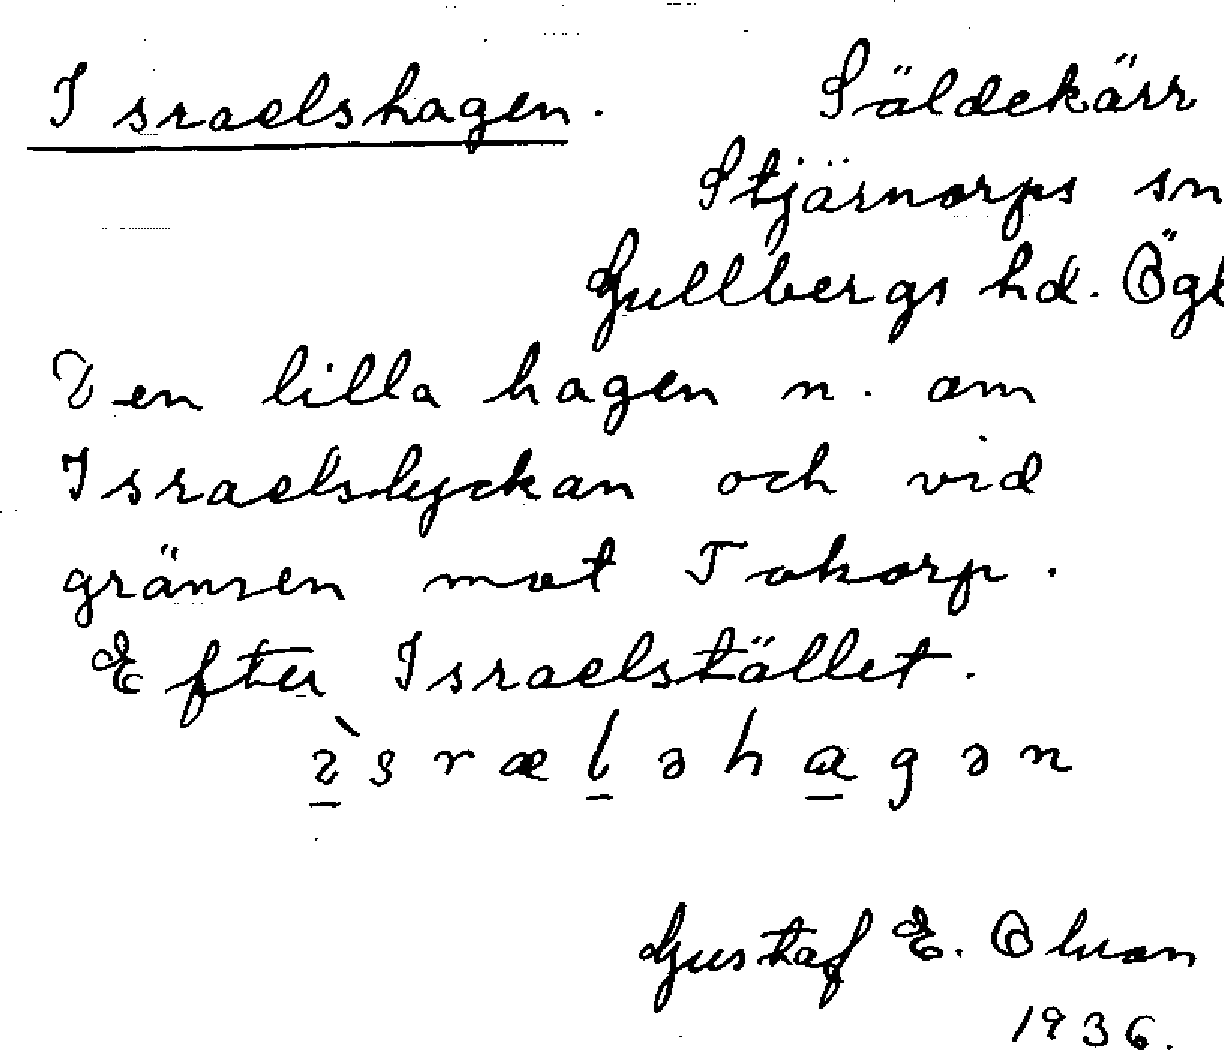 Israelshagen. Säldekärr
Stjärnorps sn
Gullbergs hd. Ögl
Den lilla hagen n. om
Israelslyckan och vid
gränsen mot Tokorp.
Efter Israelstället.
Gustaf E. Olsson
1936.